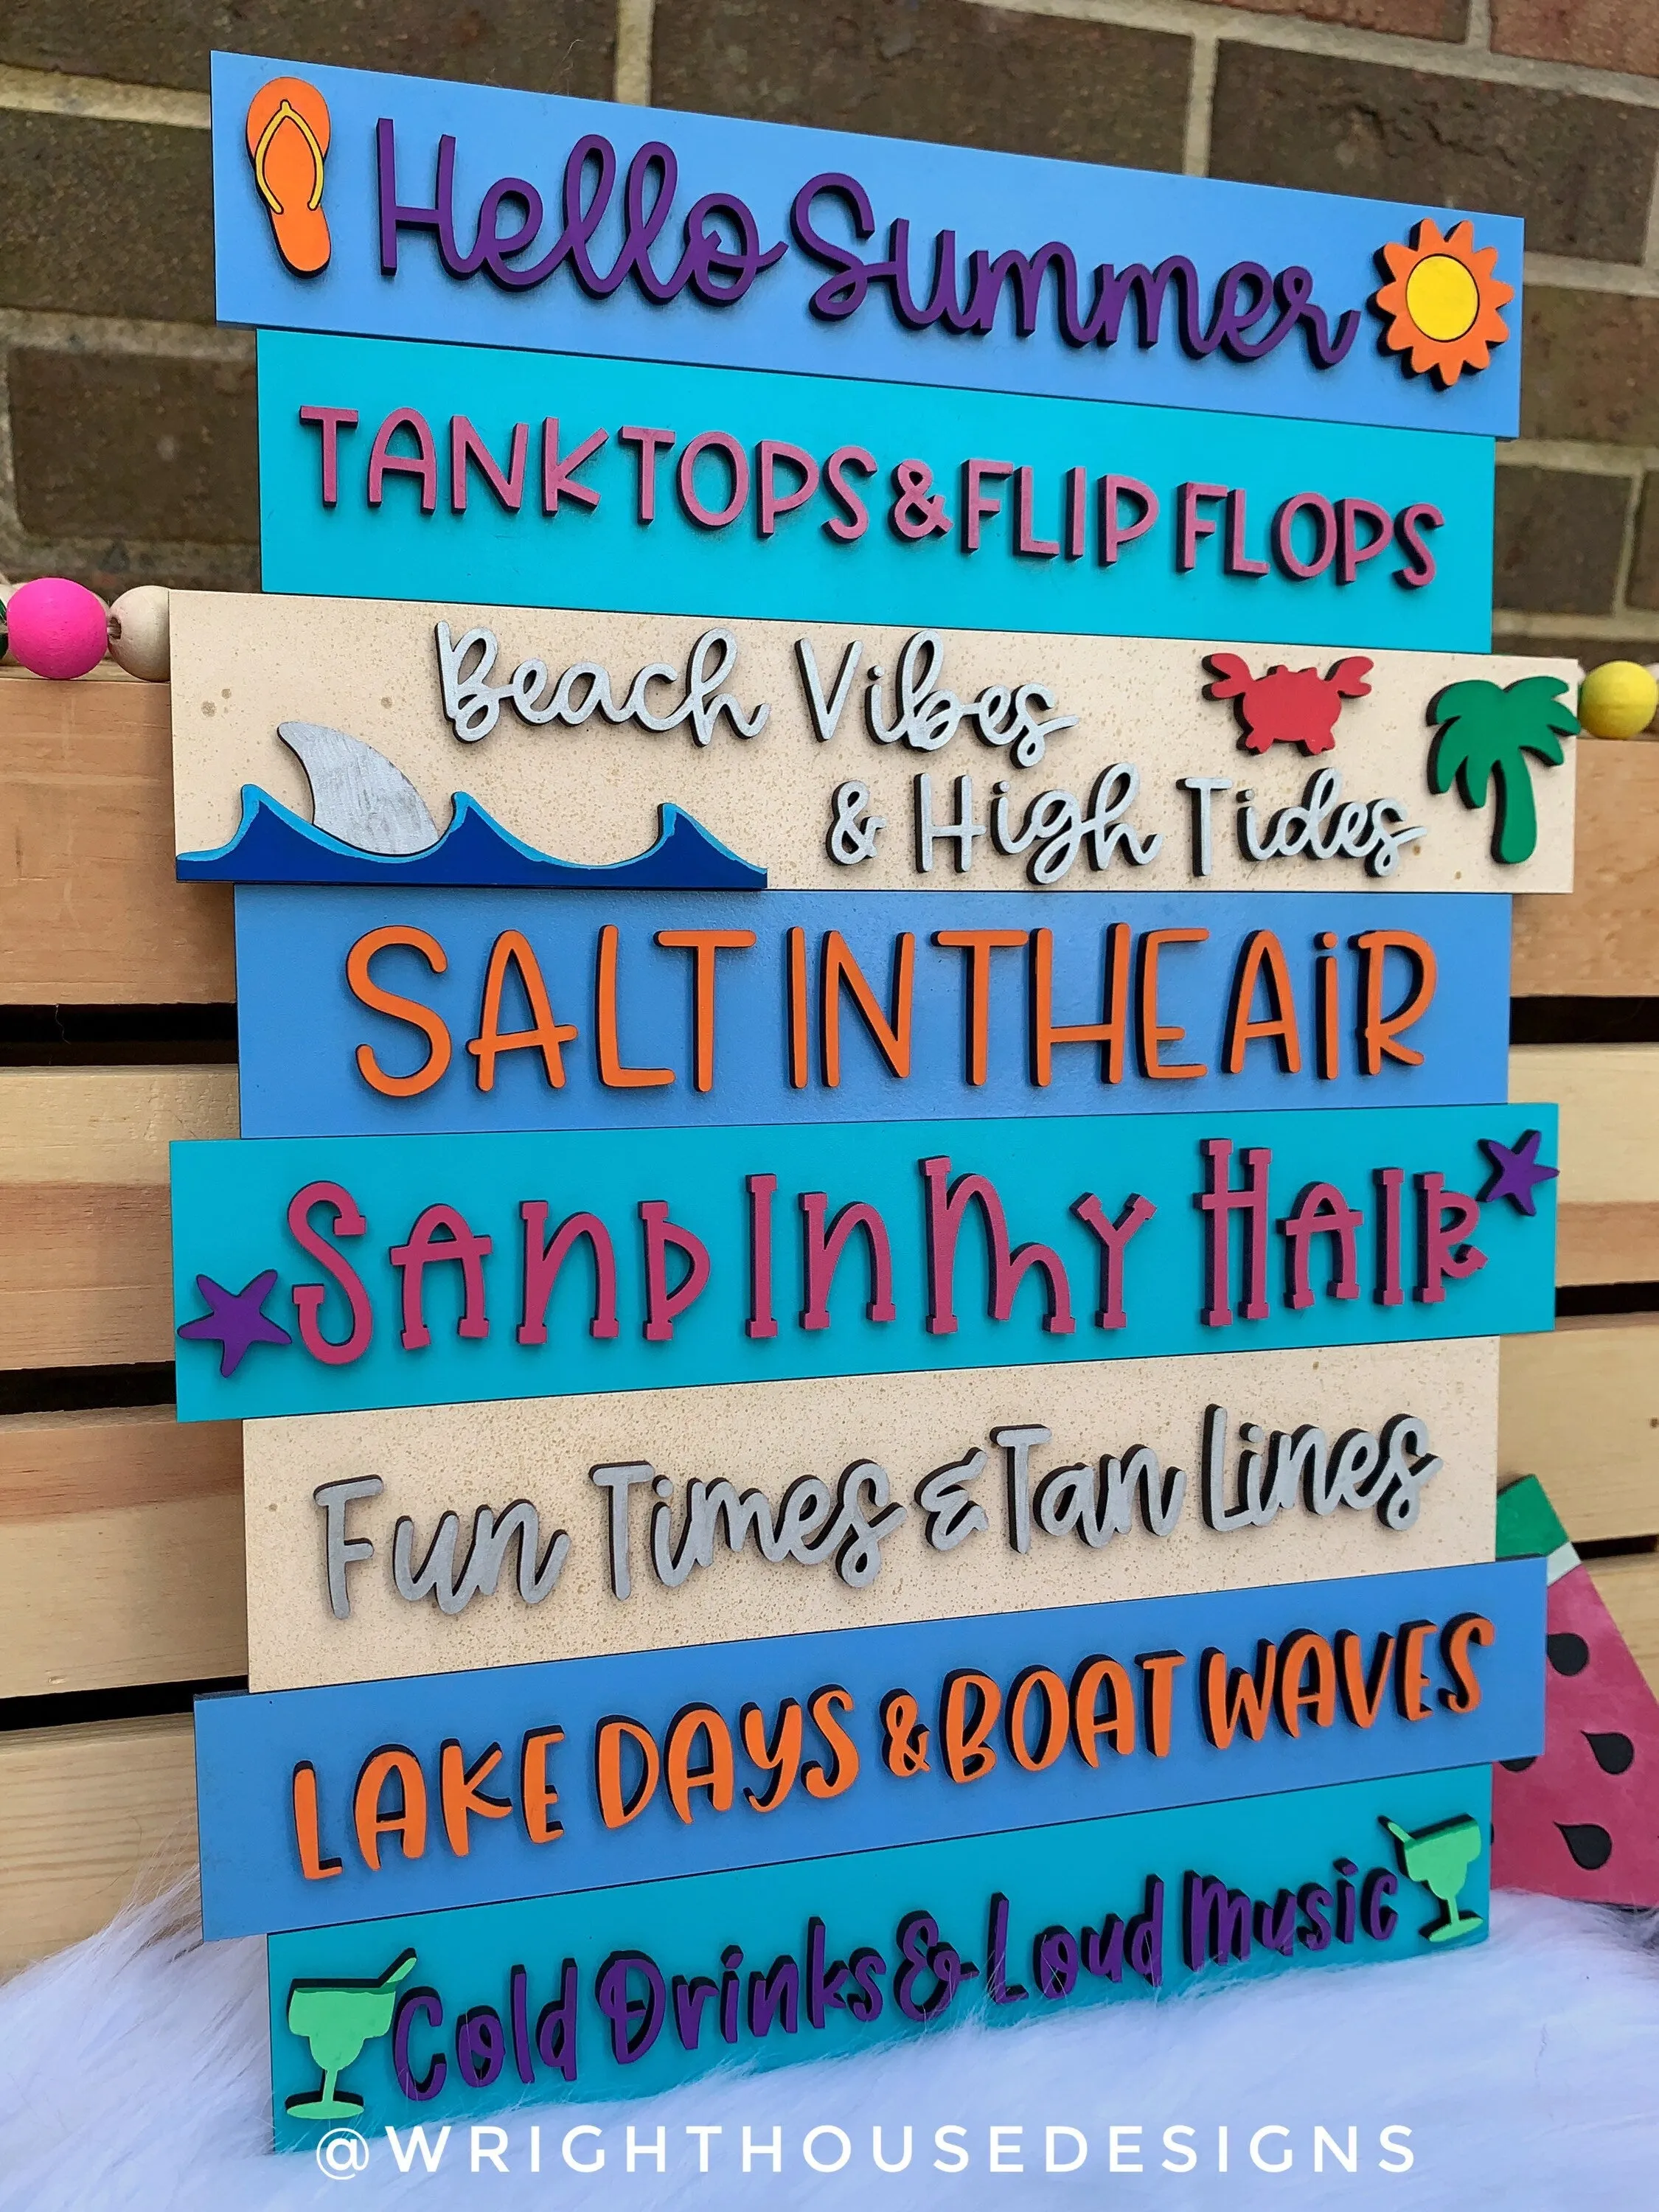 Hello Summer
TANKTOPS & FLIP FLOPS
Beach Vibes
& High Tides
SALT IN THE AiR
SAND IN MY HAIR
Fun Times & Tan Lines
LAKE DAYS & BOAT WAVES
Cold Drinks & Loud Music
@WRIGHTHOUSEDESIGNS